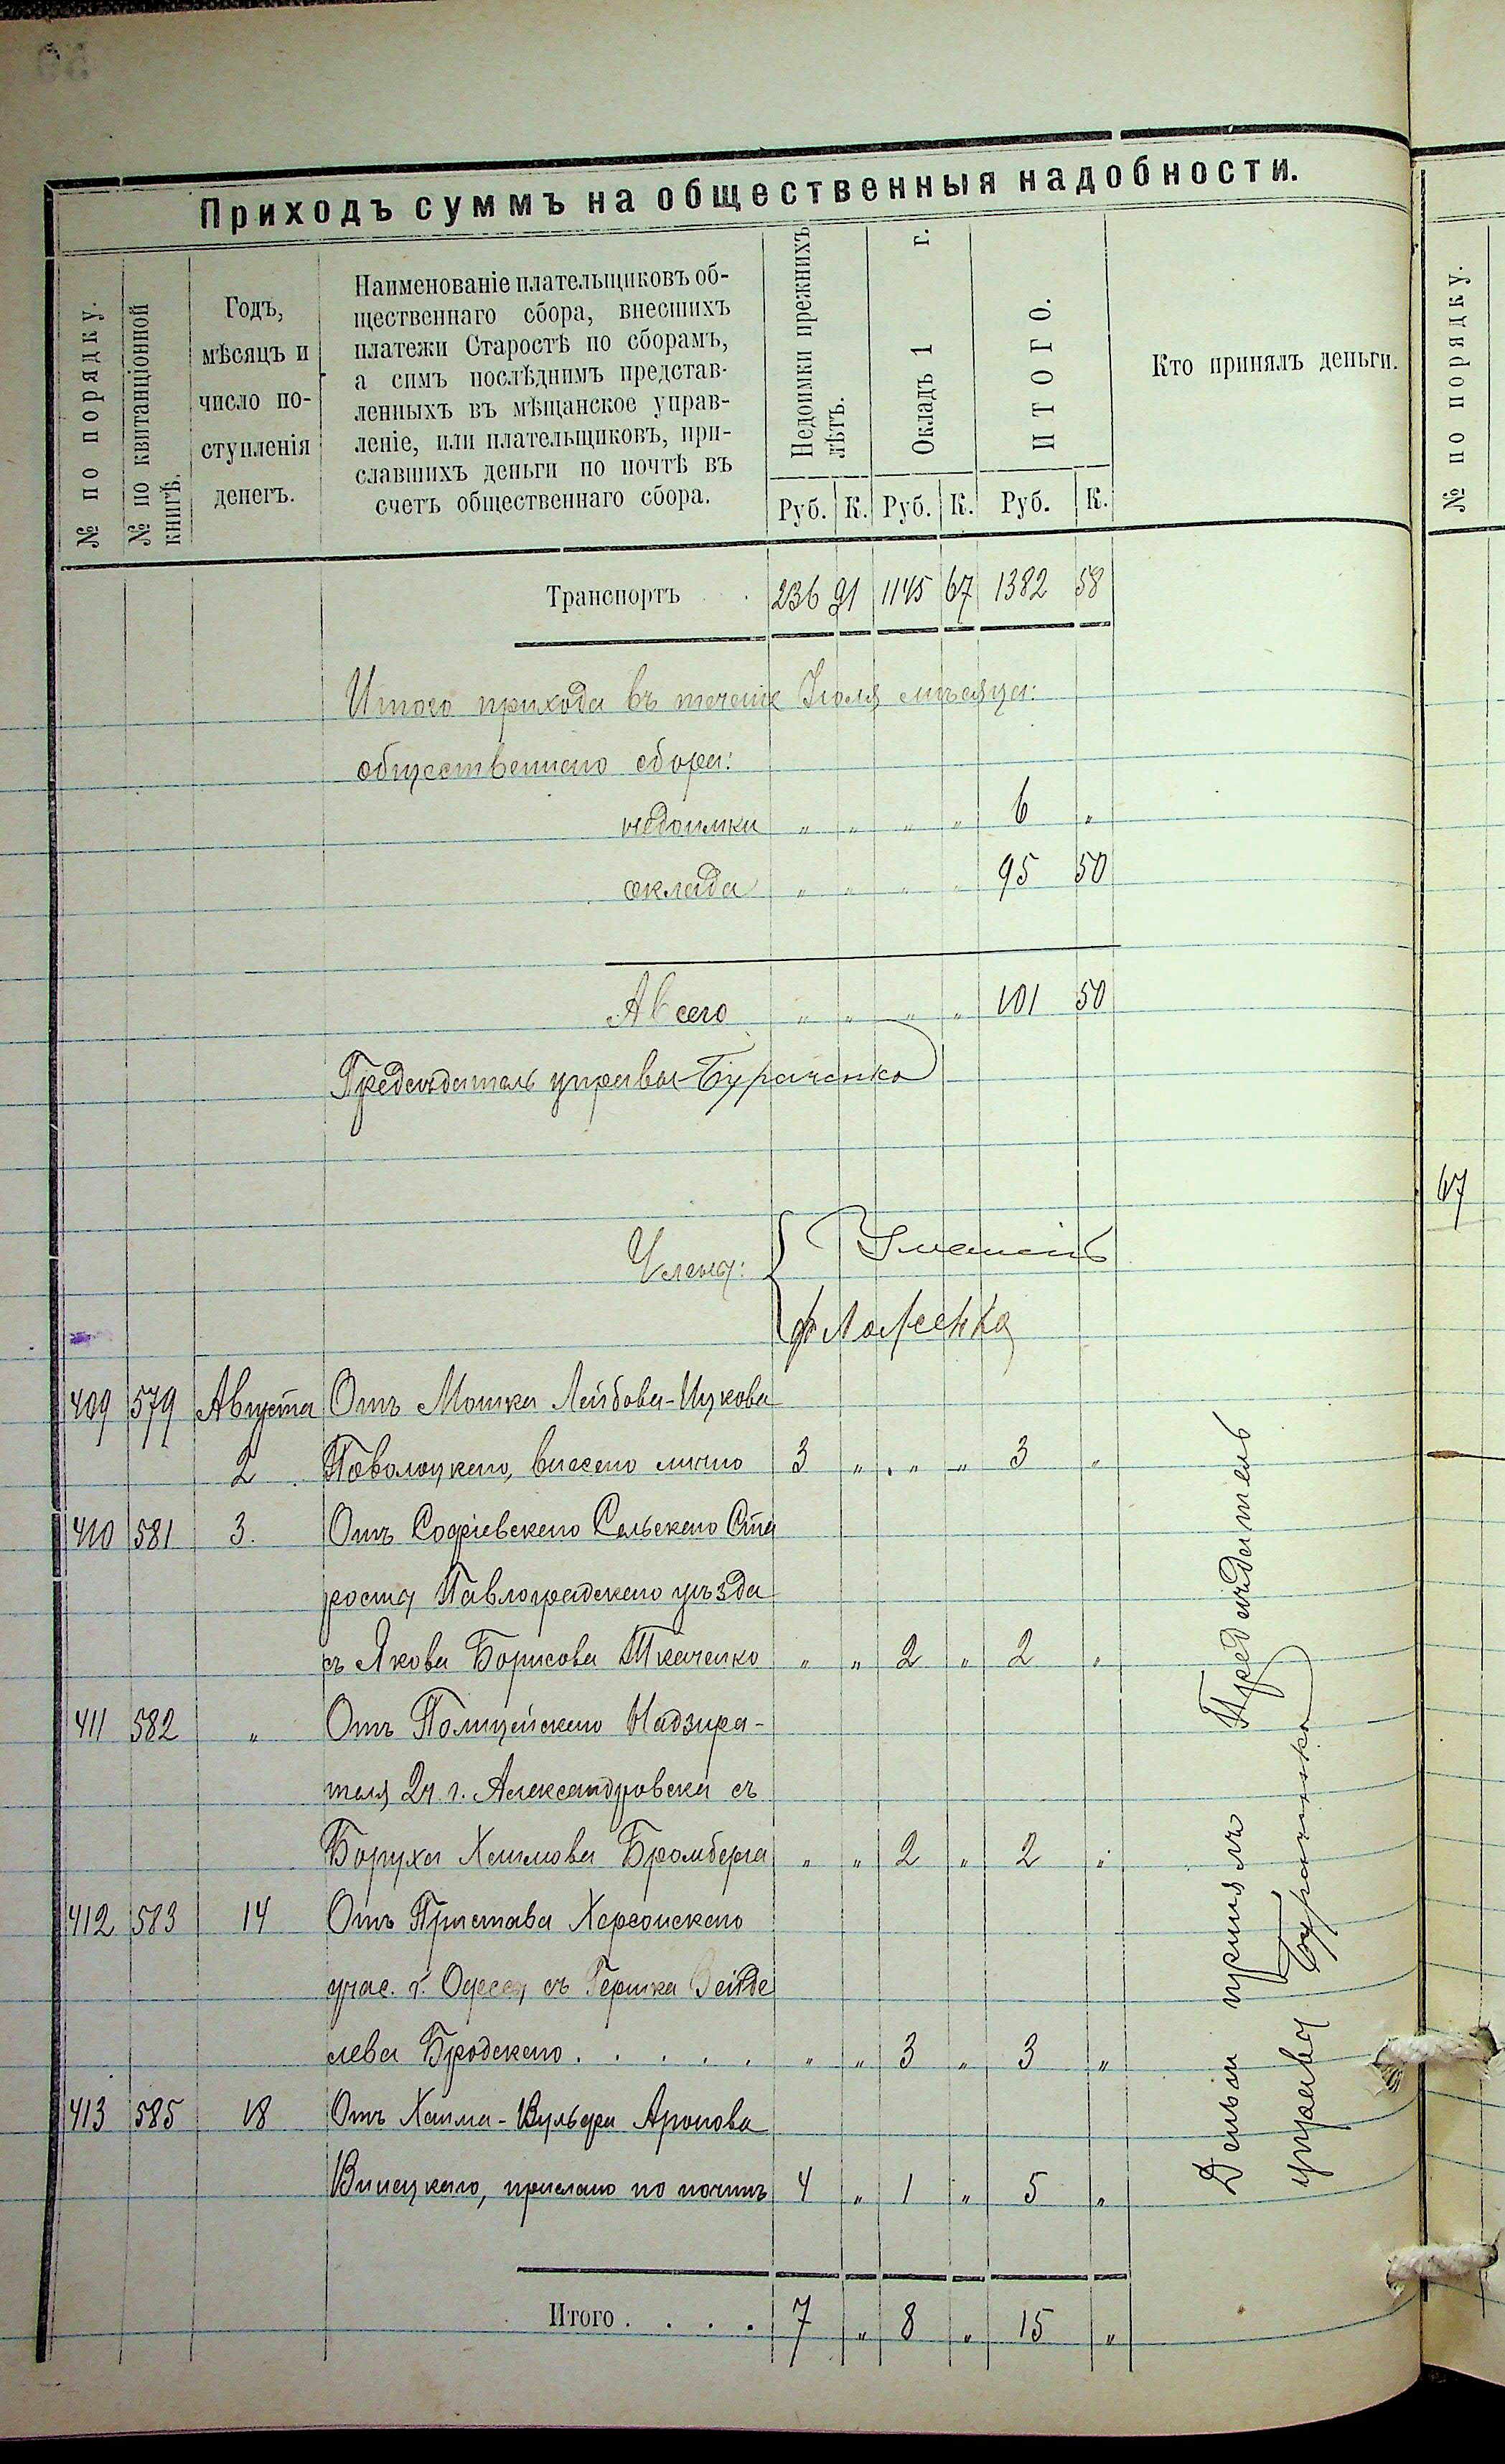 Приходъ суммъ на общественныя надобности.
№ по порядку.
№ по квитанціонной книгѣ.
Годъ,
мѣсяцъ и
число по-
ступленія
денегъ.
Наименованіе плательщиковъ об-
щественнаго сбора, внесшихъ
платежи Старостѣ по сборамъ,
а симъ послѣднимъ представ-
ленныхъ въ мѣщанское управ-
леніе, или плательщиковъ, при-
славшихъ деньги по почтѣ въ
счетъ общественнаго сбора.
Недоимки прежнихъ лѣтъ.
Окладъ 1 г.
ИТОГО.
Кто принялъ деньги.
Руб. К. Руб. К. Руб. К.
Транспортъ . 236 91 1145 67 1382 58
Итого прихода въ теченіе Іюля мѣсяца:
общественнаго сбора:
недоимки " " " " 6 "
оклада " " " " 95 50
А всего " " " " 101 50
Предсѣдатель управы Бураченко
Члены:
Ф Ложенко
409 579 Августа Отъ Мошка Лейбова-Ицкова
2 Поволоцкаго, внесено лично 3 " " " 3 "
410 581 3. Отъ Софіевскаго Сельскаго Ста
росты Павлоградскаго уѣзда
съ Якова Борисова Ткаченко " " 2 " 2 "
411 582 " Отъ Полицейскаго Надзира-
теля 2 ч. г. Александровска съ
Боруха Хаимова Бромберга " " 2 " 2 "
412 583 14 Отъ Пристава Херсонскаго
учас. г. Одессы, съ Гершка Зейде
лева Бродскаго . . . . . " " 3 " 3 "
413 585 18 Отъ Хаима-Вульфа Аронова
Винецкаго, прислано по почтѣ 4 " 1 " 5 "
Итого . . . . 7 " 8 " 15 "
Деньги принялъ Предсѣдатель
управы Бураченко
№ по порядку.
67